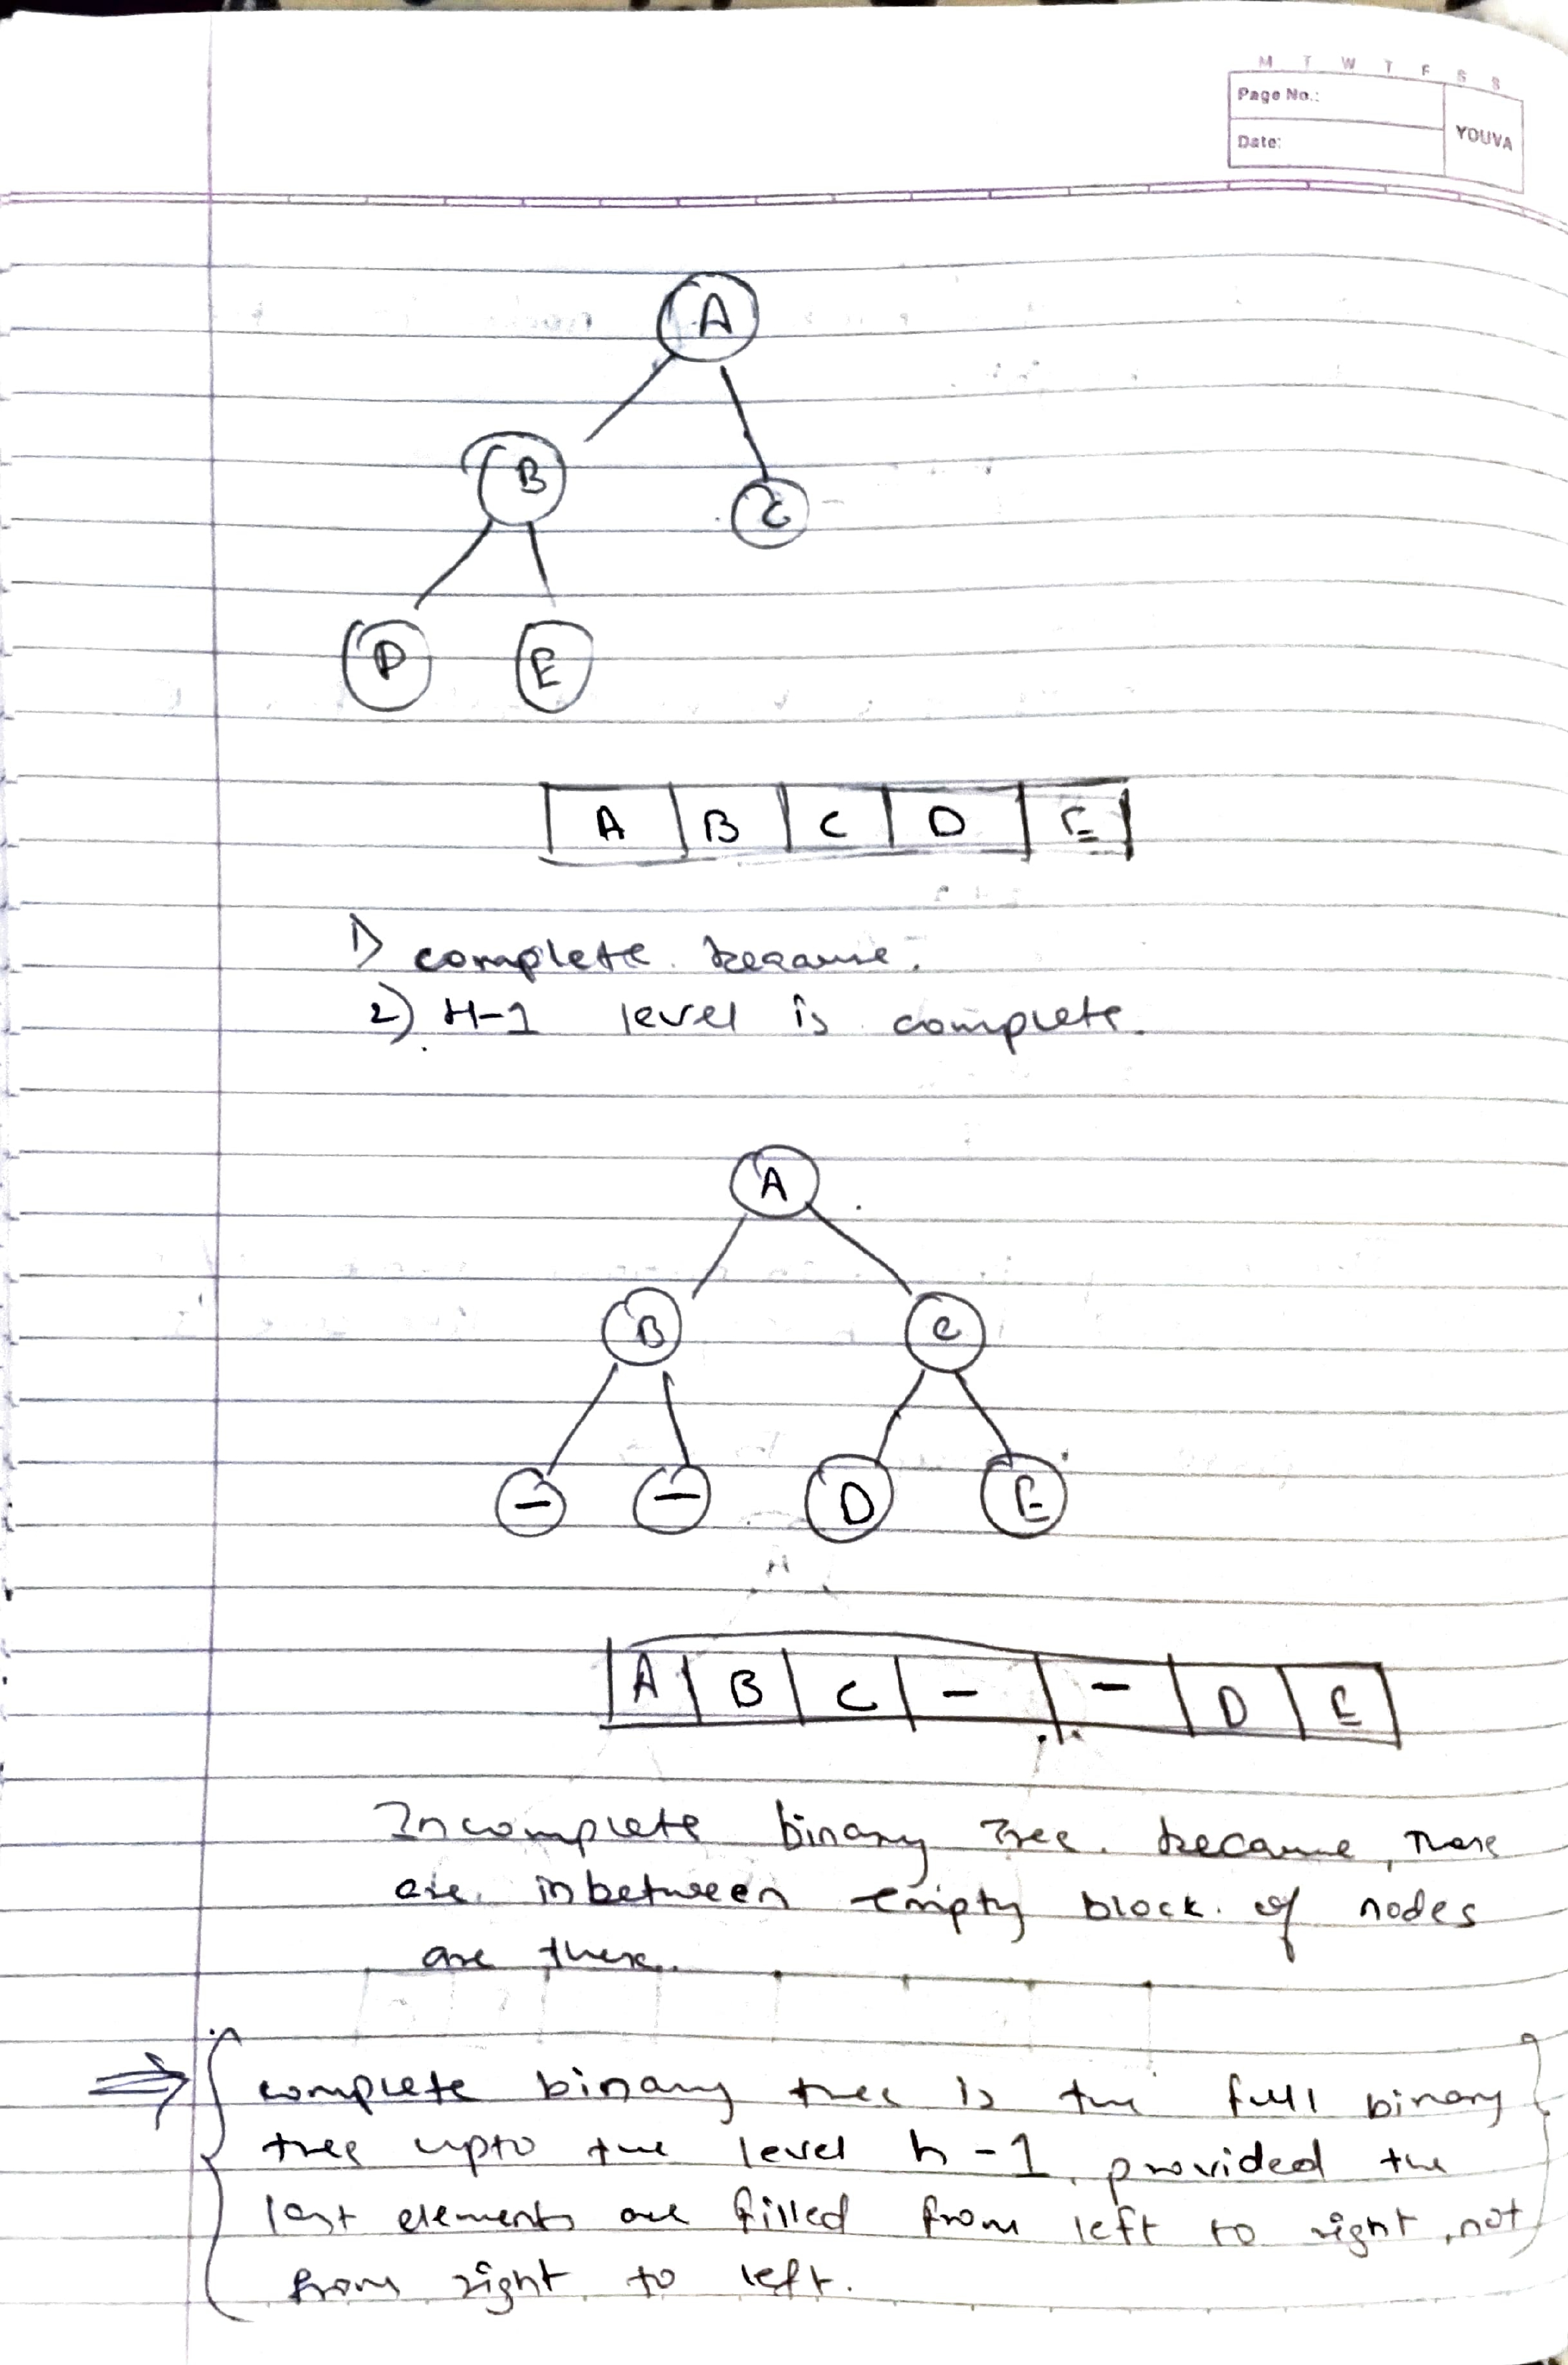 M T W T F S S
Page No.:
Date:
YOUVA
A
B
C
D E
A B C D E
1) complete. because.
2) H-1 level is complete.
A
B C
– – D E
A B C – – D E
Incomplete binary Tree. because, There
are inbetween empty block of nodes
are there.
⇒ { complete binary tree is the full binary
tree upto the level h-1, provided the
last elements are filled from left to right, not
from right to left. }